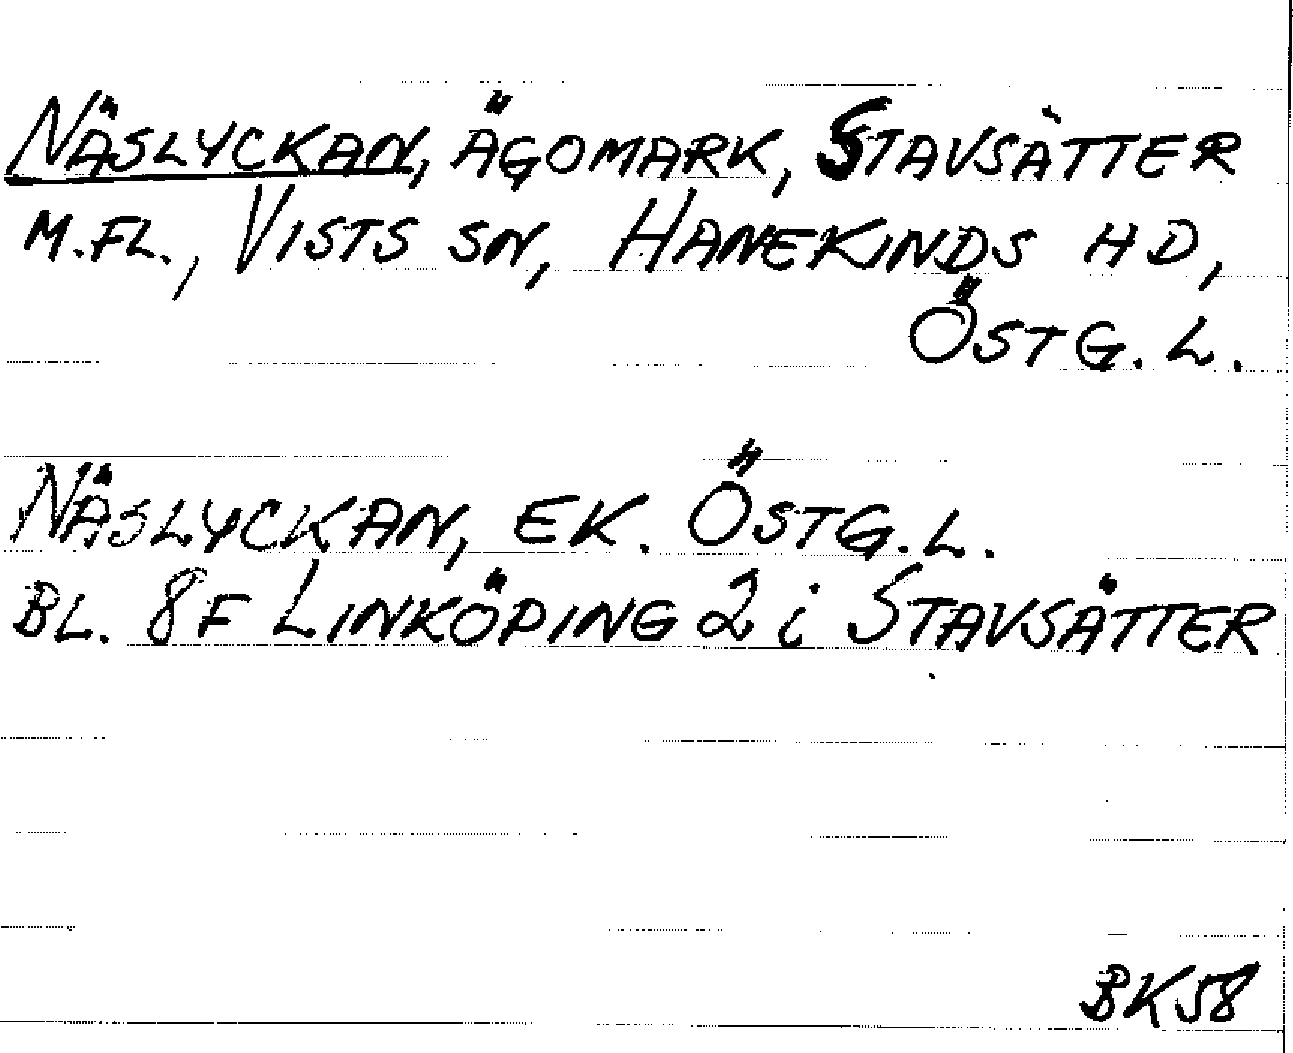 NÄSLYCKAN, ÄGOMARK, STAVSÄTTER
M.FL., VISTS SN, HANEKINDS HD,
ÖSTG. L.
NÄSLYCKAN, EK. ÖSTG. L.
BL. 8F LINKÖPING 2 i STAVSÄTTER
BK58